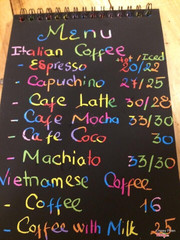 Menu
Italian Coffee
Hot / Iced
- Espresso 20/22
- Capuchino 27/25
- Cafe Latte 30/28
- Cafe Mocha 33/30
- Cafe Coco 30
- Machiato 33/30
Vietnamese Coffee
- Coffee 16
- Coffee with Milk 25